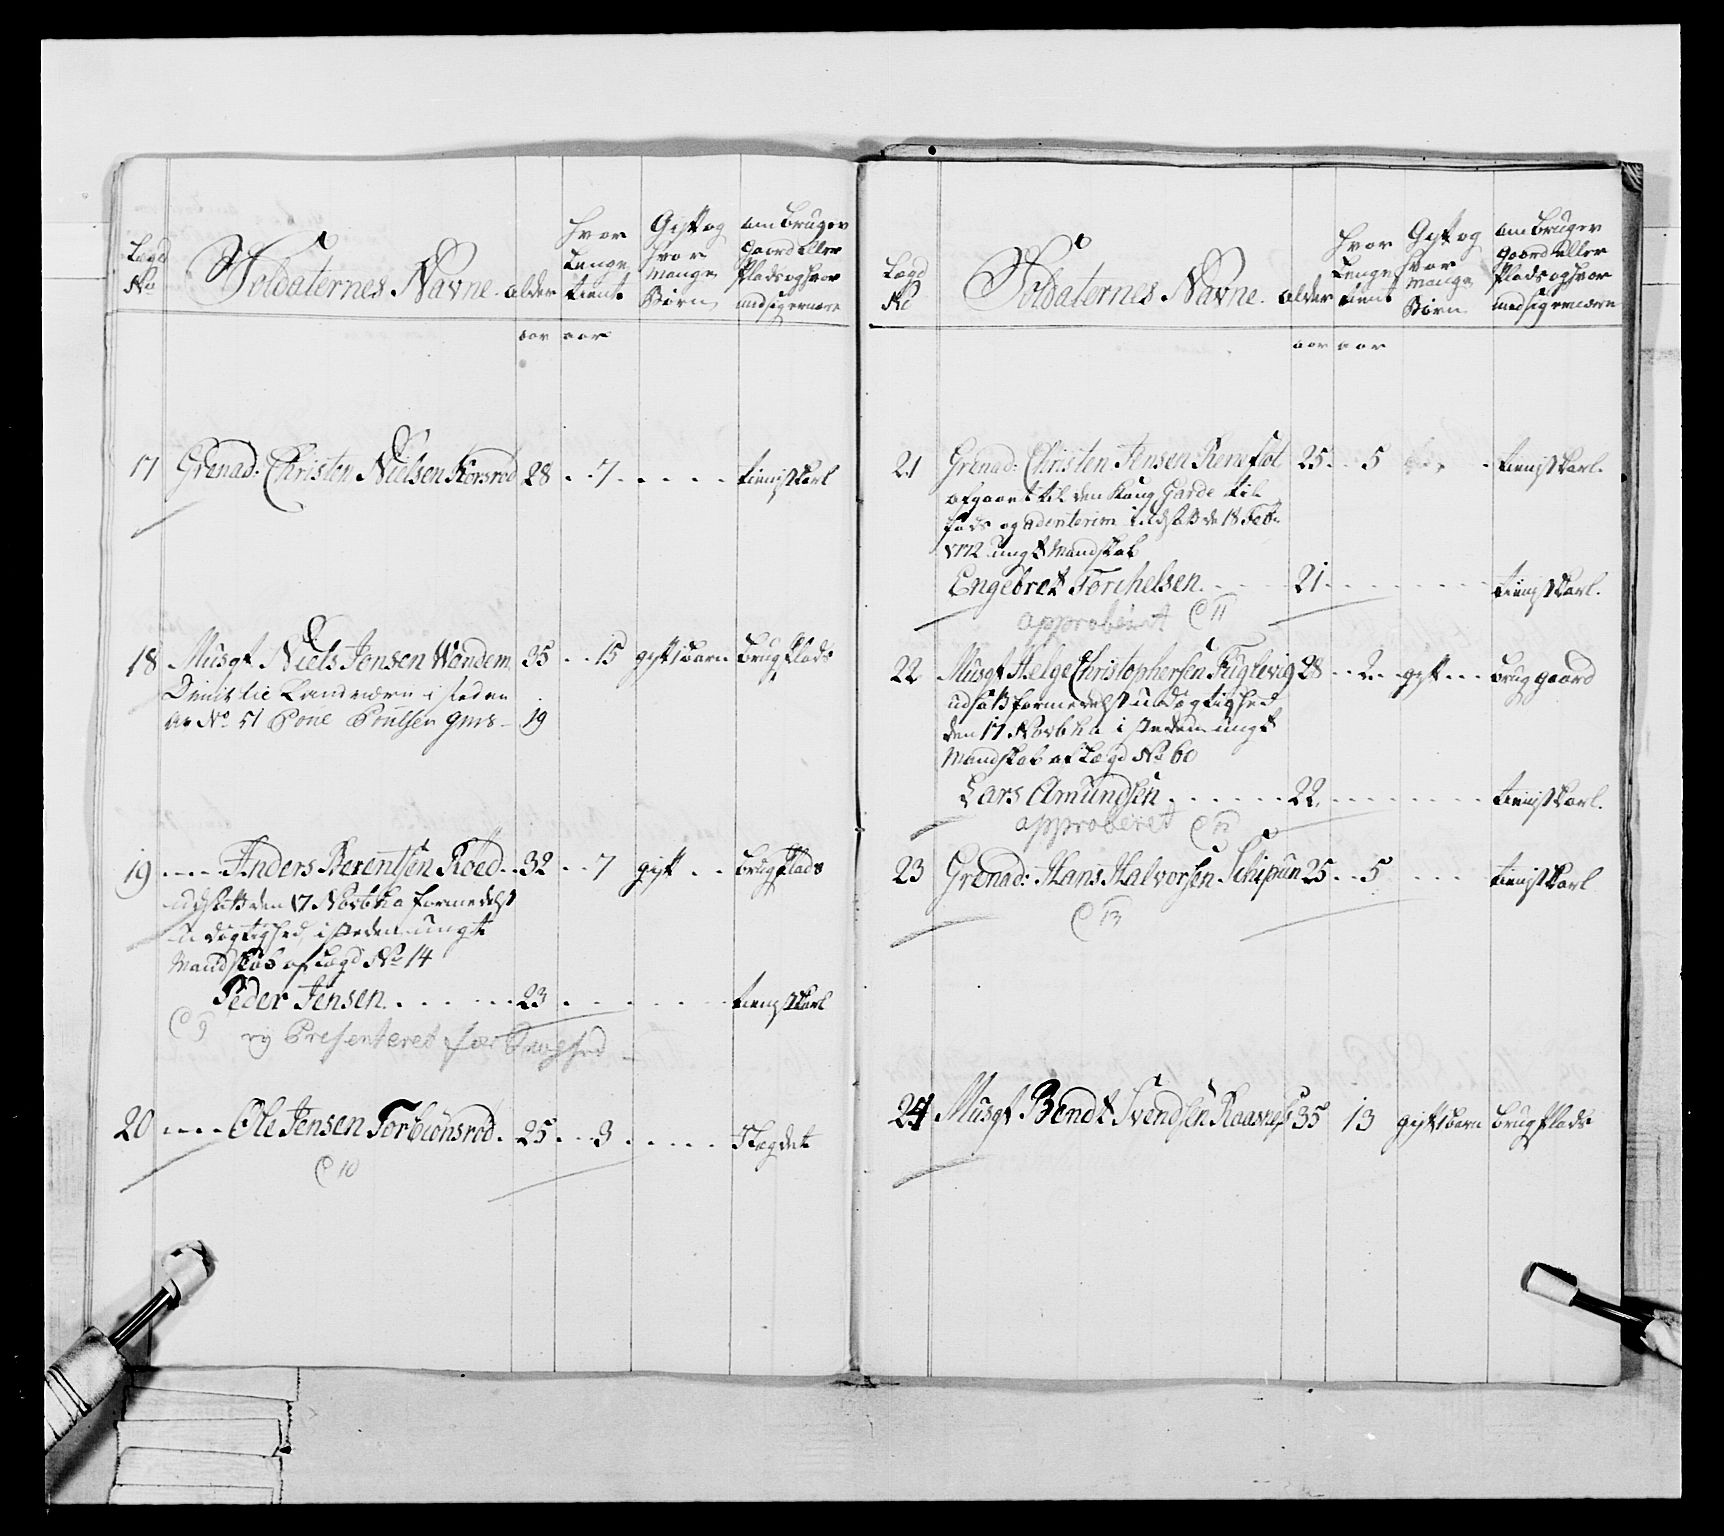 Lægd No
Soldaternes Navne
alder
Hvor Lenge tient
Gift og hvor mange Børn
om bruger Gaard eller Plads og hvor med sig ernære
aar aar
17 Grenad: Christen Nielsen Korsrød 28 . . 7 . . . . . tienistkarl
18 Musqt. Niels Jonsen Wandem 35 . . 15 gift 1 barn brug Plads
Dimit til Landværn i steden
av No 51 Poul Poulsen 19
19 . . . . Anders Berentsen Roed . . 32 . . 7 gift . . brug Plads
udsatt den 17 Novb. formedelst
u døgtighed, i steden ungt
Mandskab af Lægd No 14
Peder Jensen . . . . . . 23 . . . . . tienistkarl
C 9 Presenteret for
20 . . . . Ole Jensen Torbiönsröd . 25 . . 3 . . . . .
C 10
Lægd No
Soldaternes Navne.
alder
Hvor Lenge tient
Gift og hvor mange Børn
om bruger Gaard eller Plads og hvor med sig ernære
aar aar
21 Grenad: Christen Jensen Reneflot 25 . . 5 . . . tienistkarl.
afgaaet til den Kong Garde til
fods og ad interim indsatt de 18 Feb.
1772 ungt Mandskab
Engebret Torchelsen . . . . 21 . . . . . . tienistkarl.
approberet C 11
22 Musqt Helge Christophersen Fuglevig 28 . . 2 . . gift . . . brug gaard
udsatt formedelst udøgtighed
den 17 Novb. i steden ungt
Mandskab af Lægd No 60
Lars Amundsen . . . . . . 22. . . . . . . tienistkarl.
approberet C 12
23 Grenad: Hans Halvorsen Schipun 25 . . 5 . . . tienistkarl
C 13
24 Musqt Bendt Svendsen Raasnes 35 13 gift 1 barn brug Plads